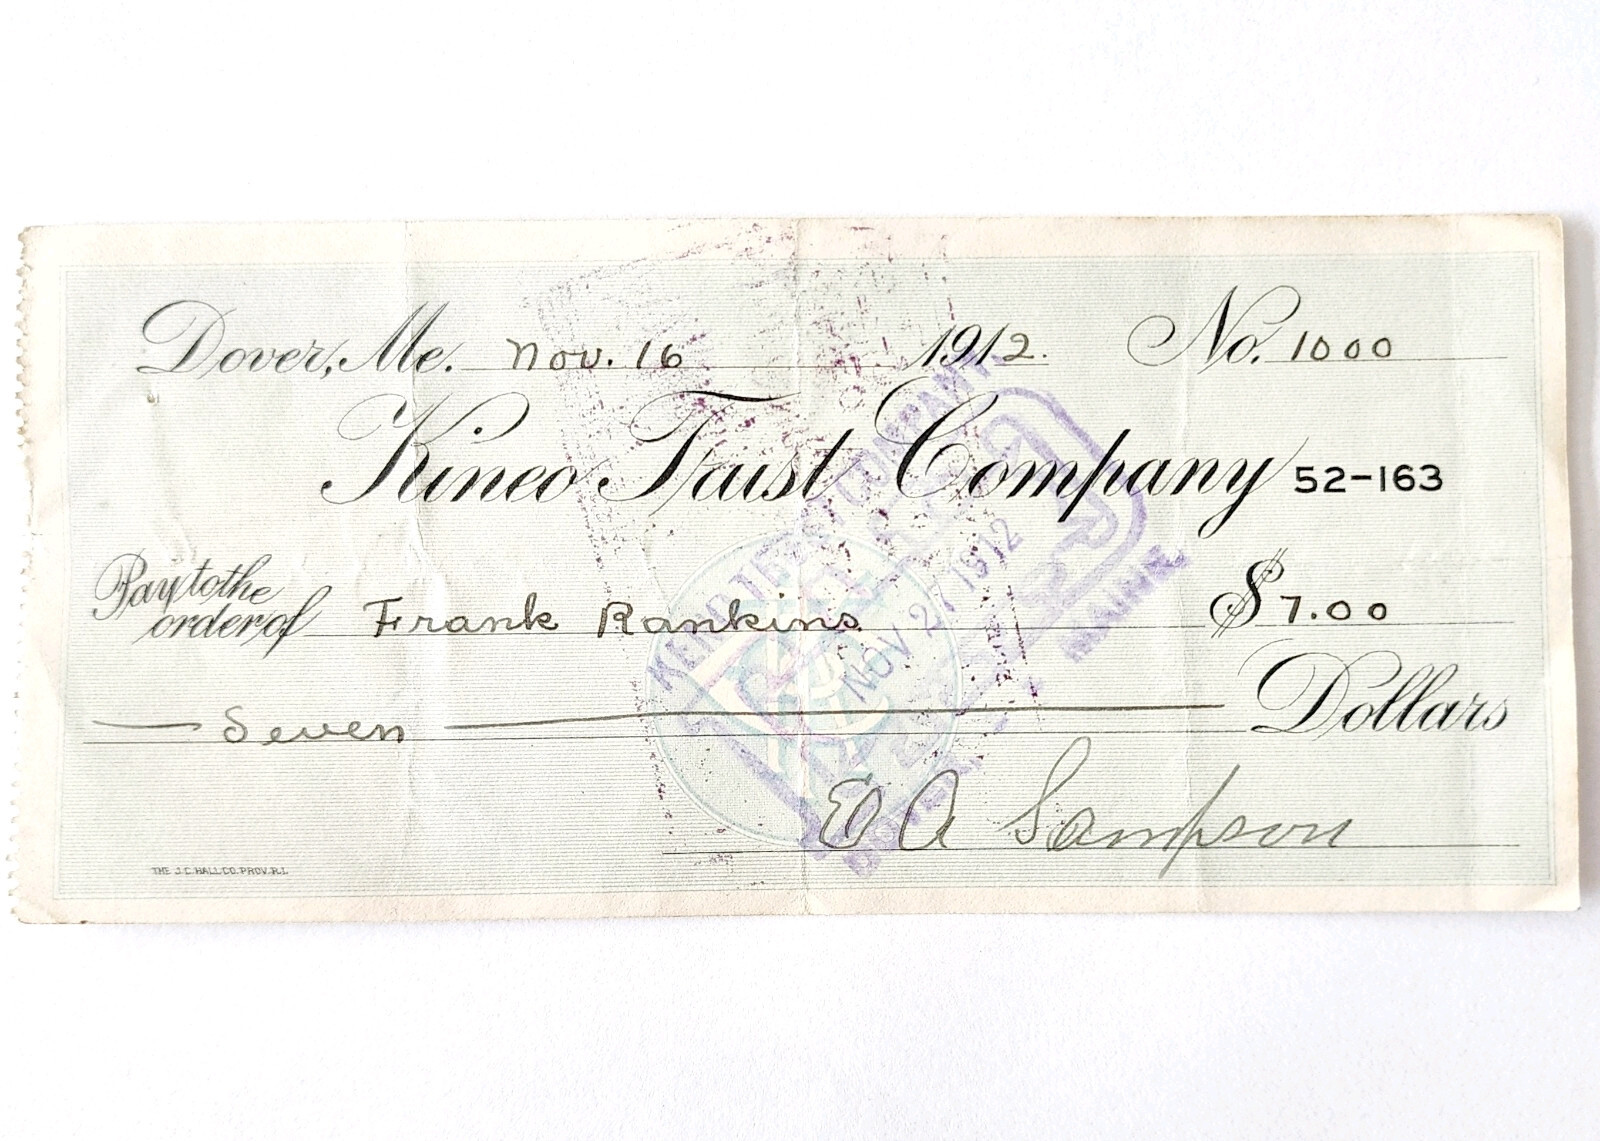 Dover, Me. Nov. 16 1912. No. 1000
Kineo Trust Company 52-163
Pay to the
order of Frank Rankins $7.00
Seven Dollars
E A Sampson
THE J.C. HALL CO. PROV. R.I.
TRUST COMPANY
NOV 27 1912
MAINE